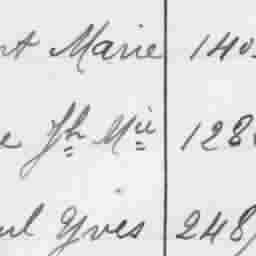 nt Marie 140
e Jh Mie 128
ul Yves 248